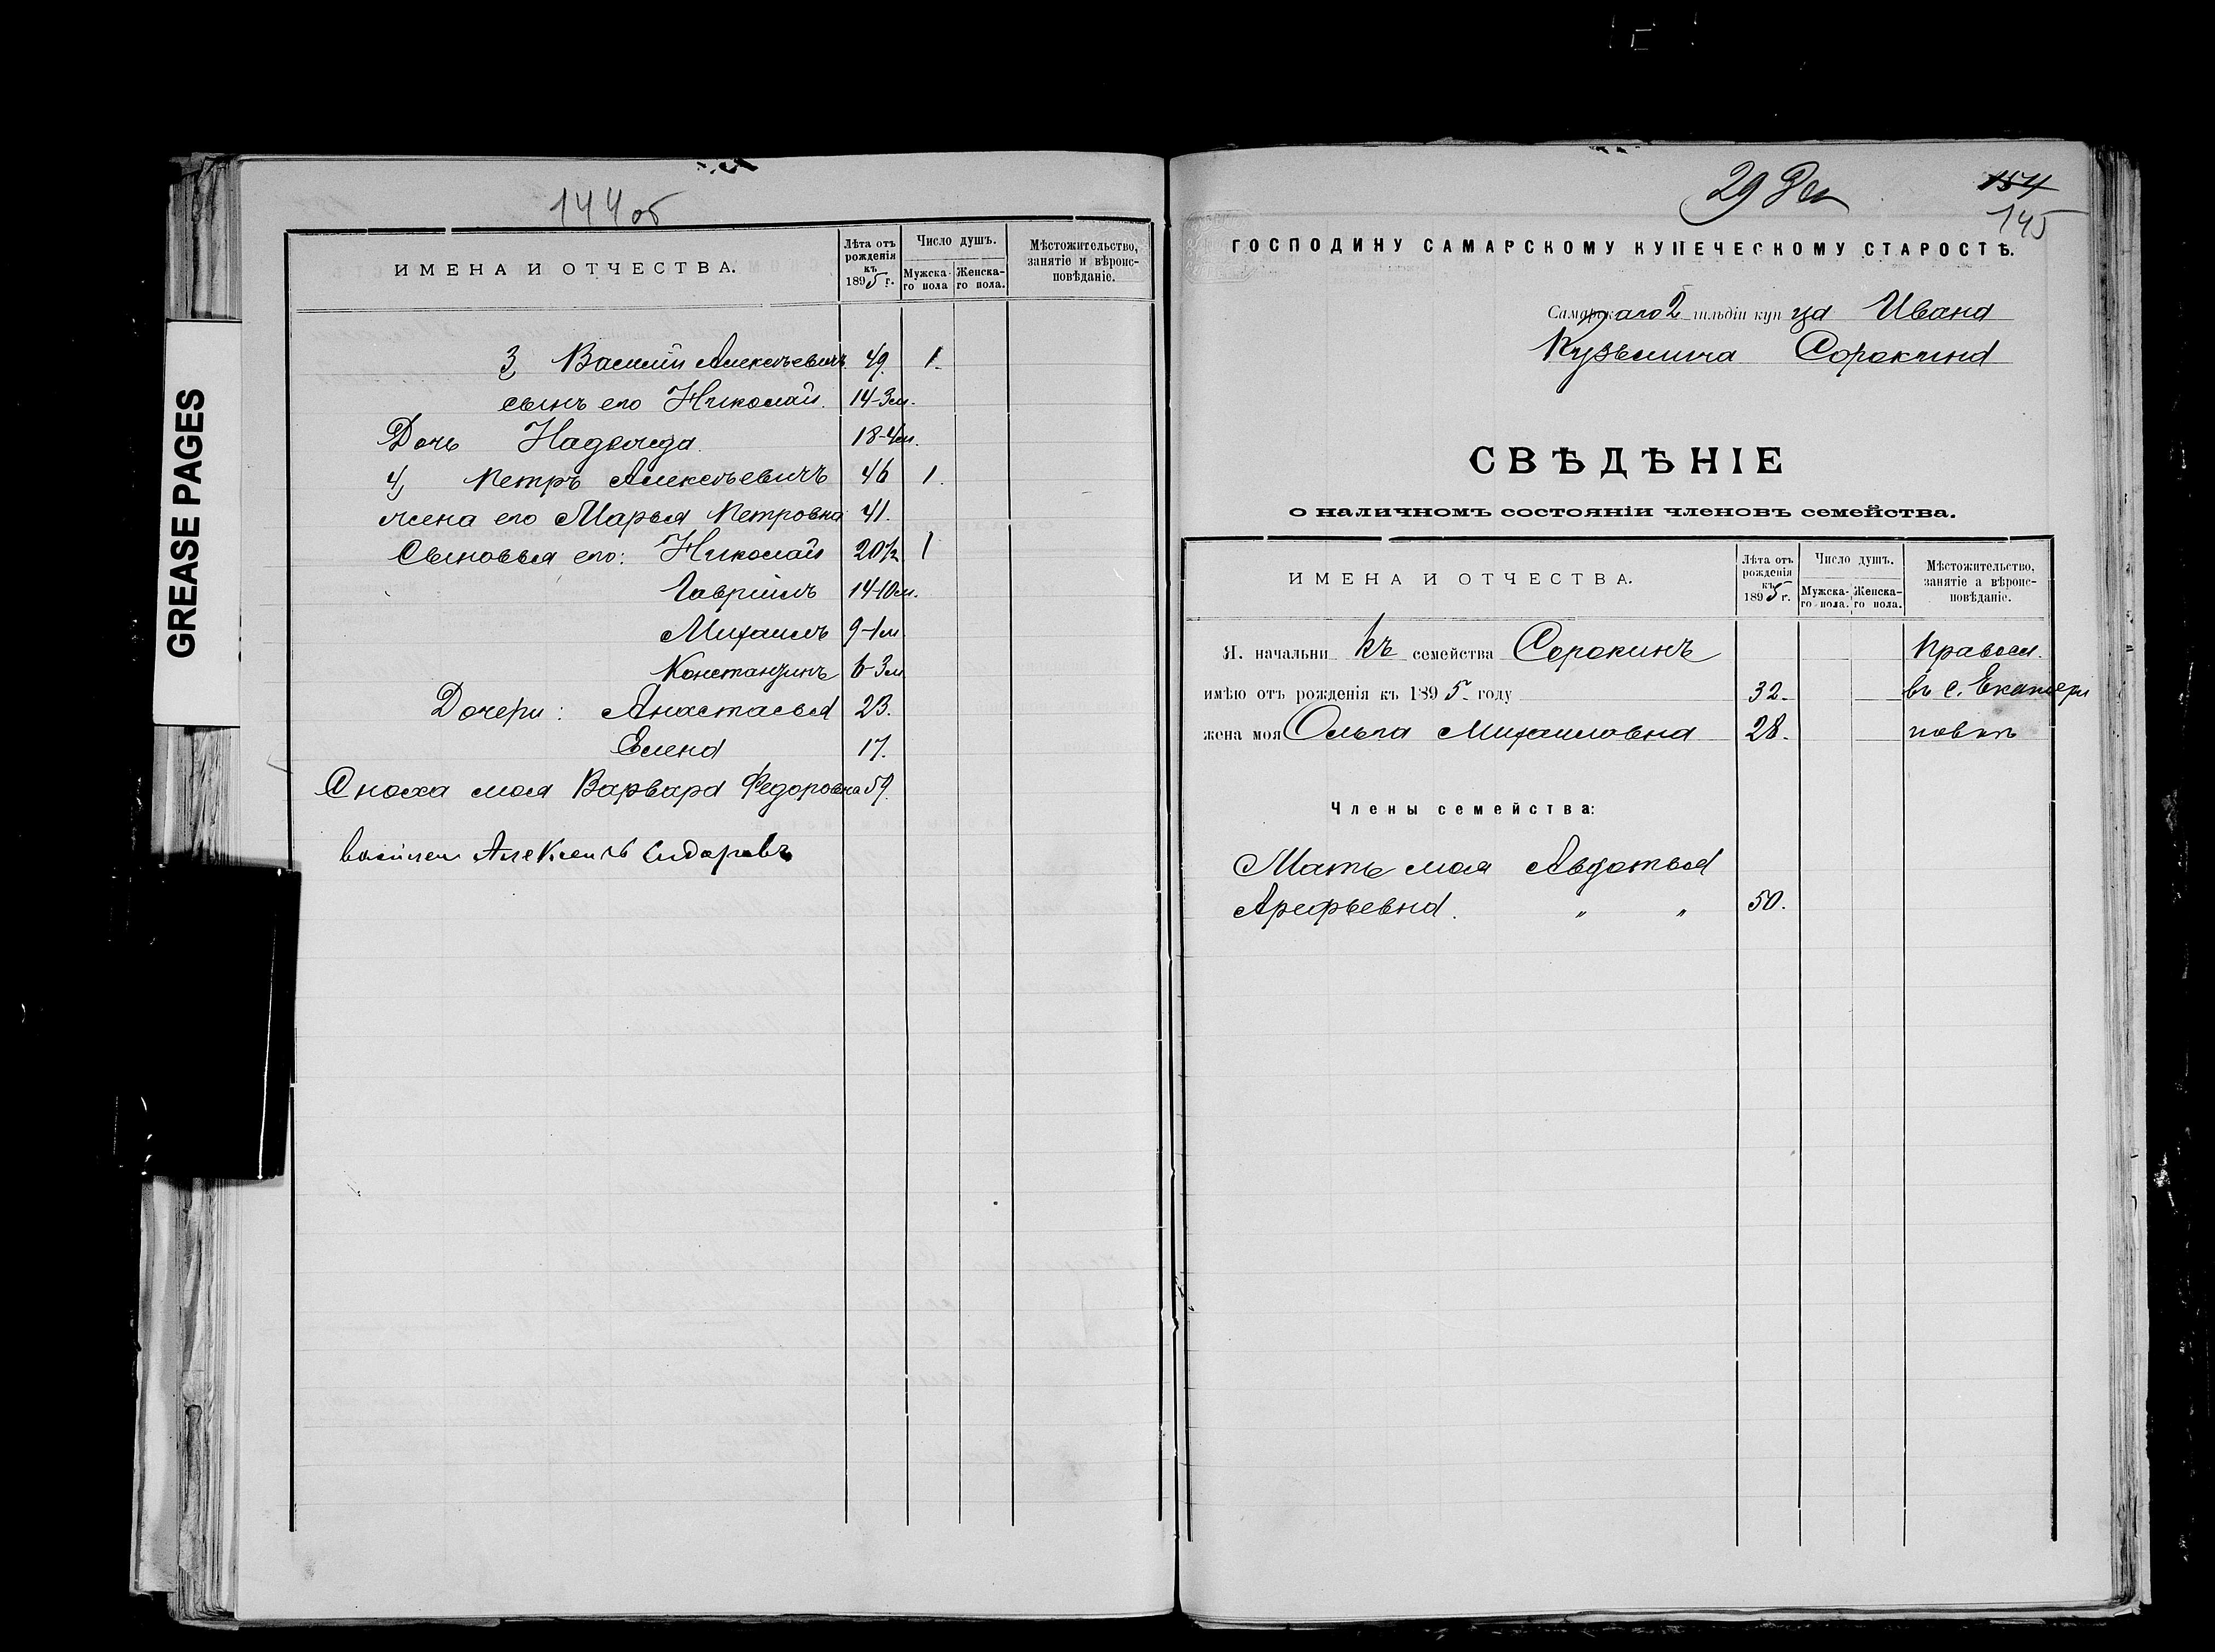 GREASE PAGES
144об
ИМЕНА И ОТЧЕСТВА.
Лѣта отъ рожденія къ 1895 г.
Число душъ.
Мужска-го пола
Женска-го пола.
Мѣстожительство, занятіе и вѣроис-повѣданіе.
3, Василій Алексѣевичъ 49. 1.
сынъ его Николай. 14-3м.
Дочь Надежда. 18-4м.
4, Петръ Алексѣевичъ 46 1.
жена его Марья Петровна 41.
Сыновья его: Николай 20½ 1
Гавріилъ 14-10м.
Михаилъ 9-1м
Константинъ 6-3м
Дочери: Анастасья 23.
Елена 17.
Сноха моя Варвара Федоровна 59.
29 154
145
ГОСПОДИНУ САМАРСКОМУ КУПЕЧЕСКОМУ СТАРОСТѢ.
Самарскаго 2 гильдіи купца Ивана
Кузьмича Сорокина
СВѢДѢНІЕ
о наличномъ состояніи членовъ семейства.
ИМЕНА И ОТЧЕСТВА.
Лѣта отъ рожденія къ 1895 г.
Число душъ.
Мужска-го пола.
Женска-го пола.
Мѣстожительство, занятіе а вѣроис-повѣданіе.
Я. начальникъ семейства Сорокинъ Правосл.
имѣю отъ рожденія къ 1895. году 32. въ с. Екатери
жена моя Ольга Михаиловна 28. новкѣ
Члены семейства:
Мать моя Авдотья
Арефьевна. " " 50.